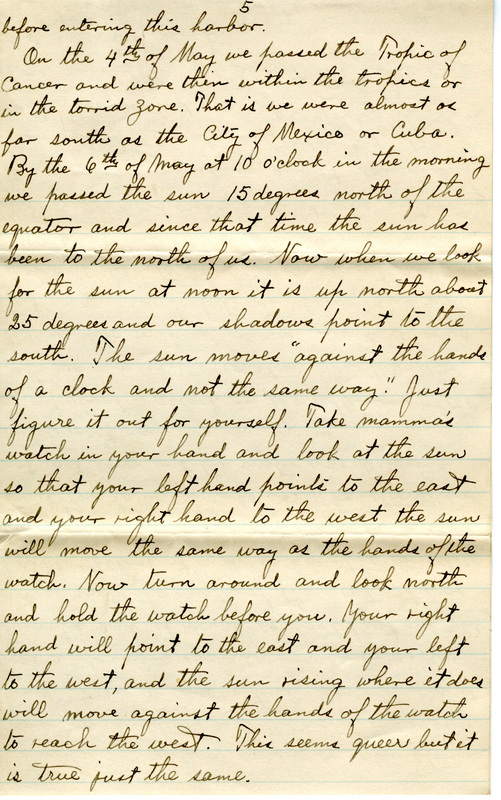 5
before entering this harbor.
On the 4th of May we passed the Tropic of
Cancer and were then within the tropics or
in the torrid zone. That is we were almost as
far south as the City of Mexico or Cuba.
By the 6th of May at 10 o'clock in the morning
we passed the sun 15 degrees north of the
equator and since that time the sun has
been to the north of us. Now when we look
for the sun at noon it is up north about
25 degrees and our shadows point to the
south. The sun moves "against the hands
of a clock and not the same way." Just
figure it out for yourself. Take mamma's
watch in your hand and look at the sun
so that your left hand points to the east
and your right hand to the west the sun
will move the same way as the hands of the
watch. Now turn around and look north
and hold the watch before you. Your right
hand will point to the east and your left
to the west, and the sun rising where it does
will move against the hands of the watch
to reach the west. This seems queer but it
is true just the same.